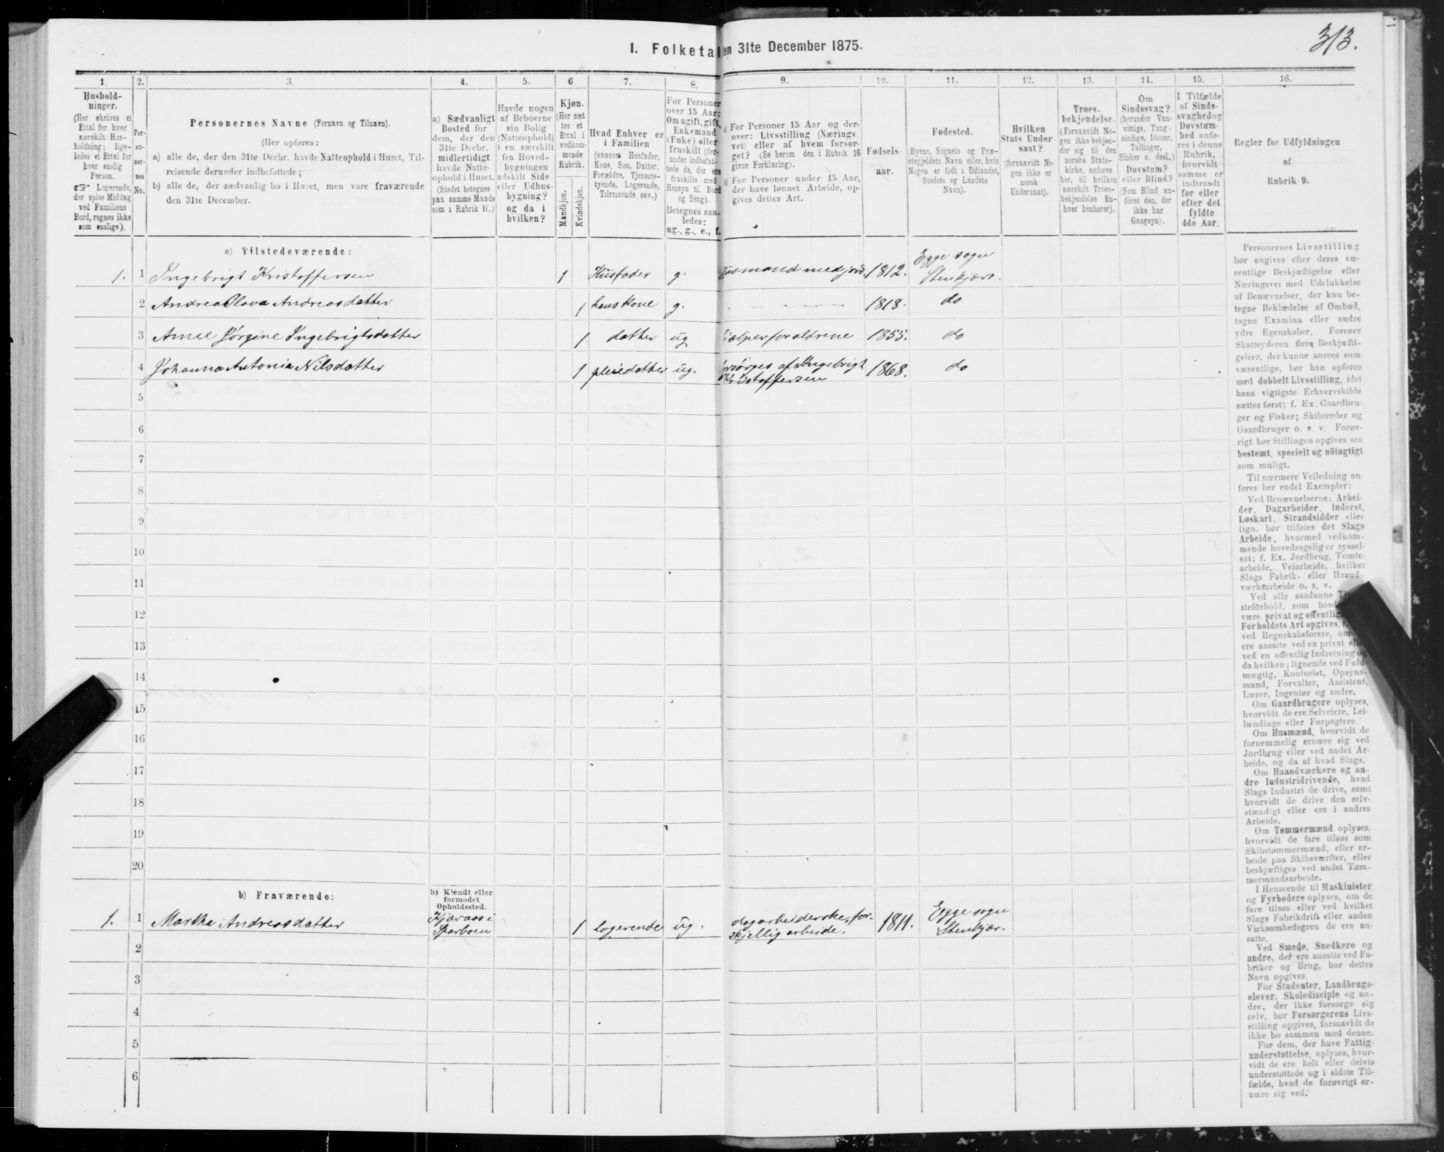 313.
I. Folketal en 31te December 1875.
1.
2.
3.
4.
5.
6
7.
8.
9.
10.
11.
12.
13.
14.
15.
16.
Hushold-
ninger.
(Her skrives et
Ettal for hver
særskilt Hus-
holdning; lige-
ledes et Ettal for
hver enslig
Person.
☞ Logerende,
der spise Middag
ved Familiens
Bord, regnes ikke
som enslige).
Per-
so-
ner-
nes
No.
Personernes Navne (Fornavn og Tilnavn).
(Her opføres:
a) alle de, der den 31te Decbr. havde Natteophold i Huset, Til-
reisende derunder indbefattede;
b) alle de, der sædvanlig bo i Huset, men vare fraværende
den 31te December.
a) Sædvanligt
Bosted for
dem, der den
31te Decbr.
midlertidigt
havde Natte-
ophold i Huset.
(Stedet betegnes
paa samme Maade
som i Rubrik 11.)
Havde nogen
af Beboerne
sin Bolig
(Natteophold)
i en særskilt
fra Hoved-
bygningen
adskilt Side-
eller Udhus-
bygning?
og da i
hvilken?
Kjøn.
(Her sæt-
tes et
Ettal i
vedkom-
mende
Rubrik.
Mandkjøn.
Kvindekjøn.
Hvad Enhver er
i Familien
(saasom Husfader,
Kone, Søn, Datter,
Forældre, Tjeneste-
tyende, Logerende,
Tilreisende osv.)
For Personer
over 15 Aar:
Om ugift, gift,
Enkemand
(Enke) eller
fraskilt (der-
under indbefat-
tede de, der ere
fraskilte med
Hensyn til Bord
og Seng).
Betegnes saa-
ledes:
ug., g., e., f.
For Personer 15 Aar og der-
over: Livsstilling (Nærings-
vei) eller af hvem forsør-
get? (Se herom den i Rubrik 16
givne Forklaring).
For Personer under 15 Aar,
der have lønnet Arbeide, op-
gives dettes Art.
Fødsels-
aar.
Fødested.
(Byens, Sognets og Præ-
stegjeldets Navn eller, hvis
Nogen er født i Udlandet,
Stedets og Landets
Navn).
Hvilken
Stats Under-
saat?
(forsaavidt No-
gen ikke er
norsk
Undersaat).
Troes-
bekjendelse.
(Forsaavidt No-
gen ikke bekjen-
der sig til den
norske Stats-
kirke, anføres
her, til hvilken
særskilt Troes-
bekjendelse En-
hver henhører).
Om
Sindssvag?
(herunder Van-
vittige, Tung-
sindige, Idioter,
Tullinger,
Sinker o. desl.)
Døvstum?
eller Blind?
(Som Blind an-
føres den, der
ikke har
Gangsyn).
I Tilfælde
af Sinds-
svaghed og
Døvstum-
hed anfø-
res i denne
Rubrik,
hvorvidt
samme er
indtraadt
før eller
efter det
fyldte
4de Aar.
Regler for Udfyldningen
af
Rubrik 9.
a) Tilstedeværende:
1. 1 Ingebrigt Kristoffersen 1 Husfader g. Husmand med jord. 1812. Egge sogn
Stenkjær.
2 Andrea Olava Andreasdatter 1 hans kone g. 1818. do
3 Anne Jørgine Ingebrigtsdatter 1 datter ug hjælper foraldrene 1855. do
4 Johanna Antonia Nilsdatter 1 pleiedatter ug. forsörges af Ingebrigt
Kristoffersen 1868. do
5
6
7
8
9
10
11
12
13
14
15
16
17
18
19
20
b) Fraværende:
b) Kjendt eller
formodet
Opholdssted.
1. 1 Marthe Andreasdatter
Sparboen 1 logerende ug. dagarbeiderske, for-
skjellig arbeide. 1811. Egge sogn
Stenkjær.
2
3
4
5
6
Personernes Livsstilling
bør angives efter deres væ-
sentlige Beskjæftigelse eller
Næringsvei med Udelukkelse
af Benævnelser, der kun be-
tegne Beklædelse af Ombud,
tagne Examina eller andre
ydre Egenskaber. Forener
Skatteyderen flere Beskjæfti-
gelser, der kunne ansees som
væsentlige, bør han opføres
med dobbelt Livsstilling, idet
hans vigtigste Erhvervskilde
sættes først; f. Ex. Gaardbru-
ger og Fisker; Skibsreder og
Gaardbruger o. s. v. Forøv-
rigt bør Stillingen opgives saa
bestemt, specielt og nöiagtigt
som muligt.
Til nærmere Veiledning an-
føres her endel Exempler:
Ved Benævnelserne: Arbei-
der, Dagarbeider, Inderst,
Løskarl, Strandsidder eller
lign. bør tilføies det Slags
Arbeide, hvormed vedkom-
mende hovedsagelig er syssel-
sat; f. Ex. Jordbrug, Tomte-
arbeide, Veiarbeide, hvilket
Slags Fabrik- eller Haand-
værksarbeide o. s. v.
Ved alle saadanne
steforhold, som baade
være privat og offentlig
Forholdets Art opgives,
ved Regnskabsførere, om
ere ansatte ved en privat
ved en offentlig Indretning
da hvilken; lignende ved Fuld-
mægtig, Kontorist, Opsyns-
mand, Forvalter, Assistent,
Lærer, Ingeniør og andre.
Om Gaardbrugere oplyses,
hvorvidt de ere Selveiere, Lei-
lændinge eller Forpagtere.
Om Husmænd, hvorvidt de
fornemmelig ernære sig ved
Jordbrug eller ved andet Ar-
beide, og da af hvad Slags.
Om Haandværkere og an-
dre Industridrivende, hvad
Slags Industri de drive, samt
hvorvidt de drive den selv-
stændigt eller ere i andres
Arbeide.
Om Tømmermænd oplyses,
hvorvidt de fare tilsøs som
Skibstømmermænd, eller ar-
beide paa Skibsværfter, eller
beskjæftiges ved andet Tøm-
mermandsarbeide.
I Henseende til Maskinister
og Fyrbødere oplyses, om de
fare tilsøs eller ved hvilket
Slags Fabrikdrift eller anden
Virksomhedsgren de ere an-
satte.
Ved Smede, Snedkere og
andre, der ere ansatte ved Fa-
briker og Brug, bør dettes
Navn opgives.
For Studenter, Landbrugs-
elever, Skoledisciple og an-
dre, der ikke forsørge sig
selv, bør Forsørgerens Livs-
stilling opgives, forsaavidt de
ikke bo sammen med denne.
For dem, der have Fattig-
understøttelse, oplyses, hvor-
vidt de ere helt eller delvis
understøttede og i sidste Til-
fælde, hvad de forøvrigt er-
nære sig ved.